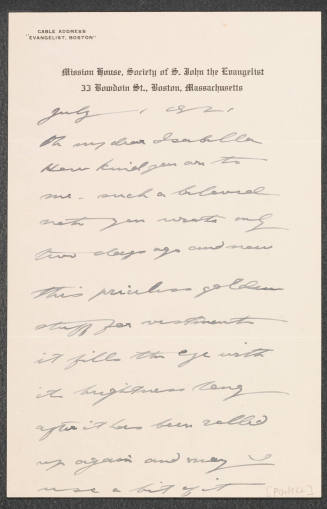 CABLE ADDRESS
"EVANGELIST, BOSTON"
Mission House, Society of S. John the Evangelist
33 Bowdoin St., Boston, Massachusetts
July 1921
Oh my dear Isabella
How kind you are to
me - such a beloved
note you wrote only
two days ago and now
this priceless golden
stuff for vestments
it fills the eye with
its brightness long
after it has been rolled
up again and may I
use a bit of it